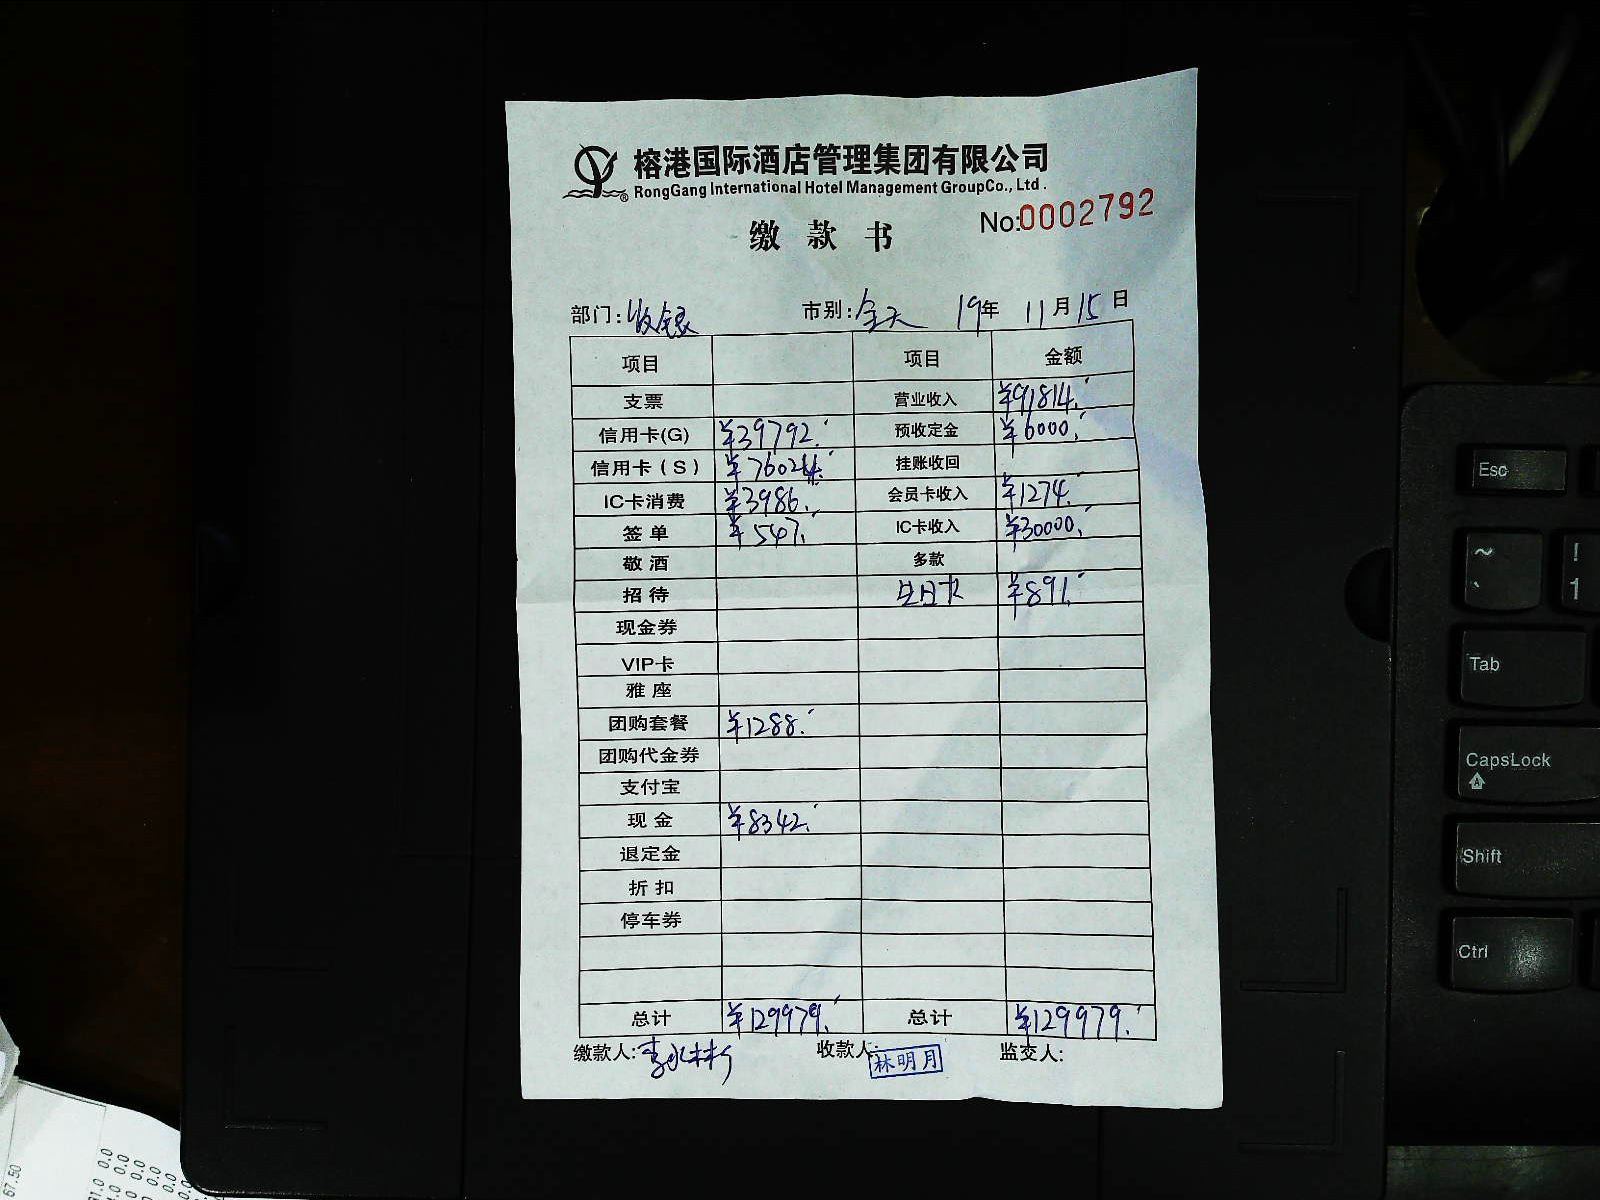 榕港国际酒店管理集团有限公司
® RongGang International Hotel Management GroupCo., Ltd .
No:0002792
缴 款 书
部门:收银 市别:全天 19年 11月15日
项目 项目 金额
支票 营业收入 ¥91814.
信用卡(G) ¥39792. 预收定金 ¥6000.
信用卡(S) ¥76024. 挂账收回
IC卡消费 ¥3986. 会员卡收入 ¥1274.
签 单 ¥547. IC卡收入 ¥30000.
敬 酒 多款
招 待 生日卡 ¥891.
现金券
VIP卡
雅 座
团购套餐 ¥1288.
团购代金券
支付宝
现 金 ¥8342.
退定金
折 扣
停车券
总计 ¥129979. 总计 ¥129979.
缴款人: 收款人: 林明月 监交人:
Esc
~ !
` 1
Tab
CapsLock
Shift
Ctrl
67.50
0.0
0.0
0.0
0.0